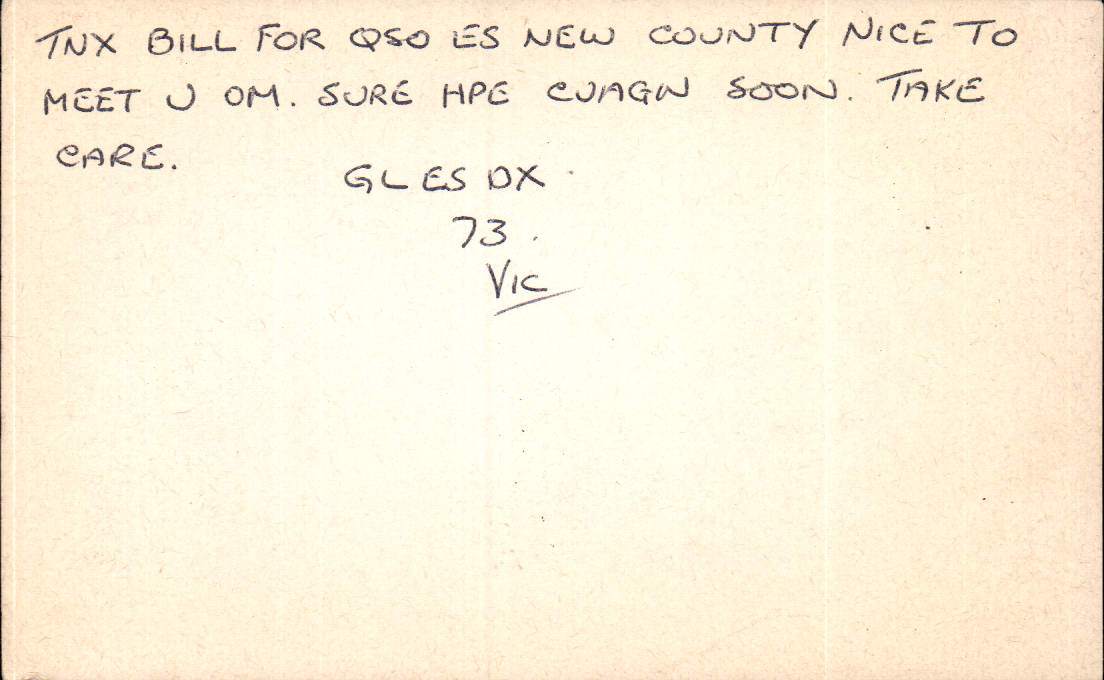 TNX BILL FOR QSO ES NEW COUNTY NICE TO
MEET U OM. SURE HPE CUAGN SOON. TAKE
CARE.
GL ES DX
73.
VIC